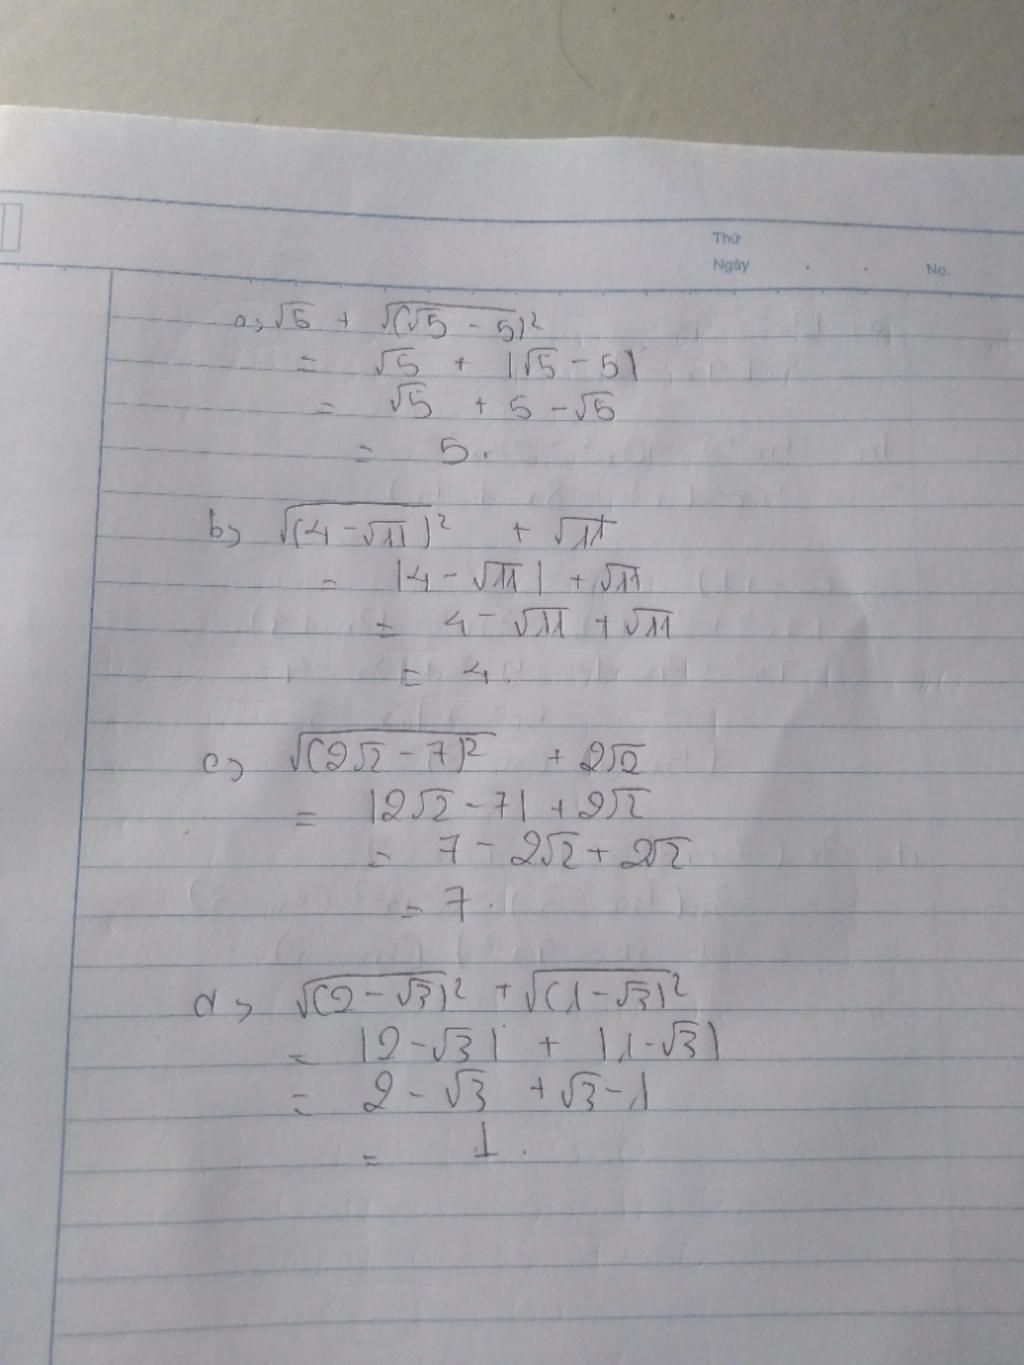 Thứ
Ngày . . No.
a, √5 + √(√5 - 5)²
= √5 + |√5 - 5|
= √5 + 5 - √5
= 5.
b, √(4 - √11)² + √11
= |4 - √11| + √11
= 4 - √11 + √11
= 4.
c, √(2√2 - 7)² + 2√2
= |2√2 - 7| + 2√2
= 7 - 2√2 + 2√2
= 7.
d, √(2 - √3)² + √(1 - √3)²
= |2 - √3| + |1 - √3|
= 2 - √3 + √3 - 1
= 1.